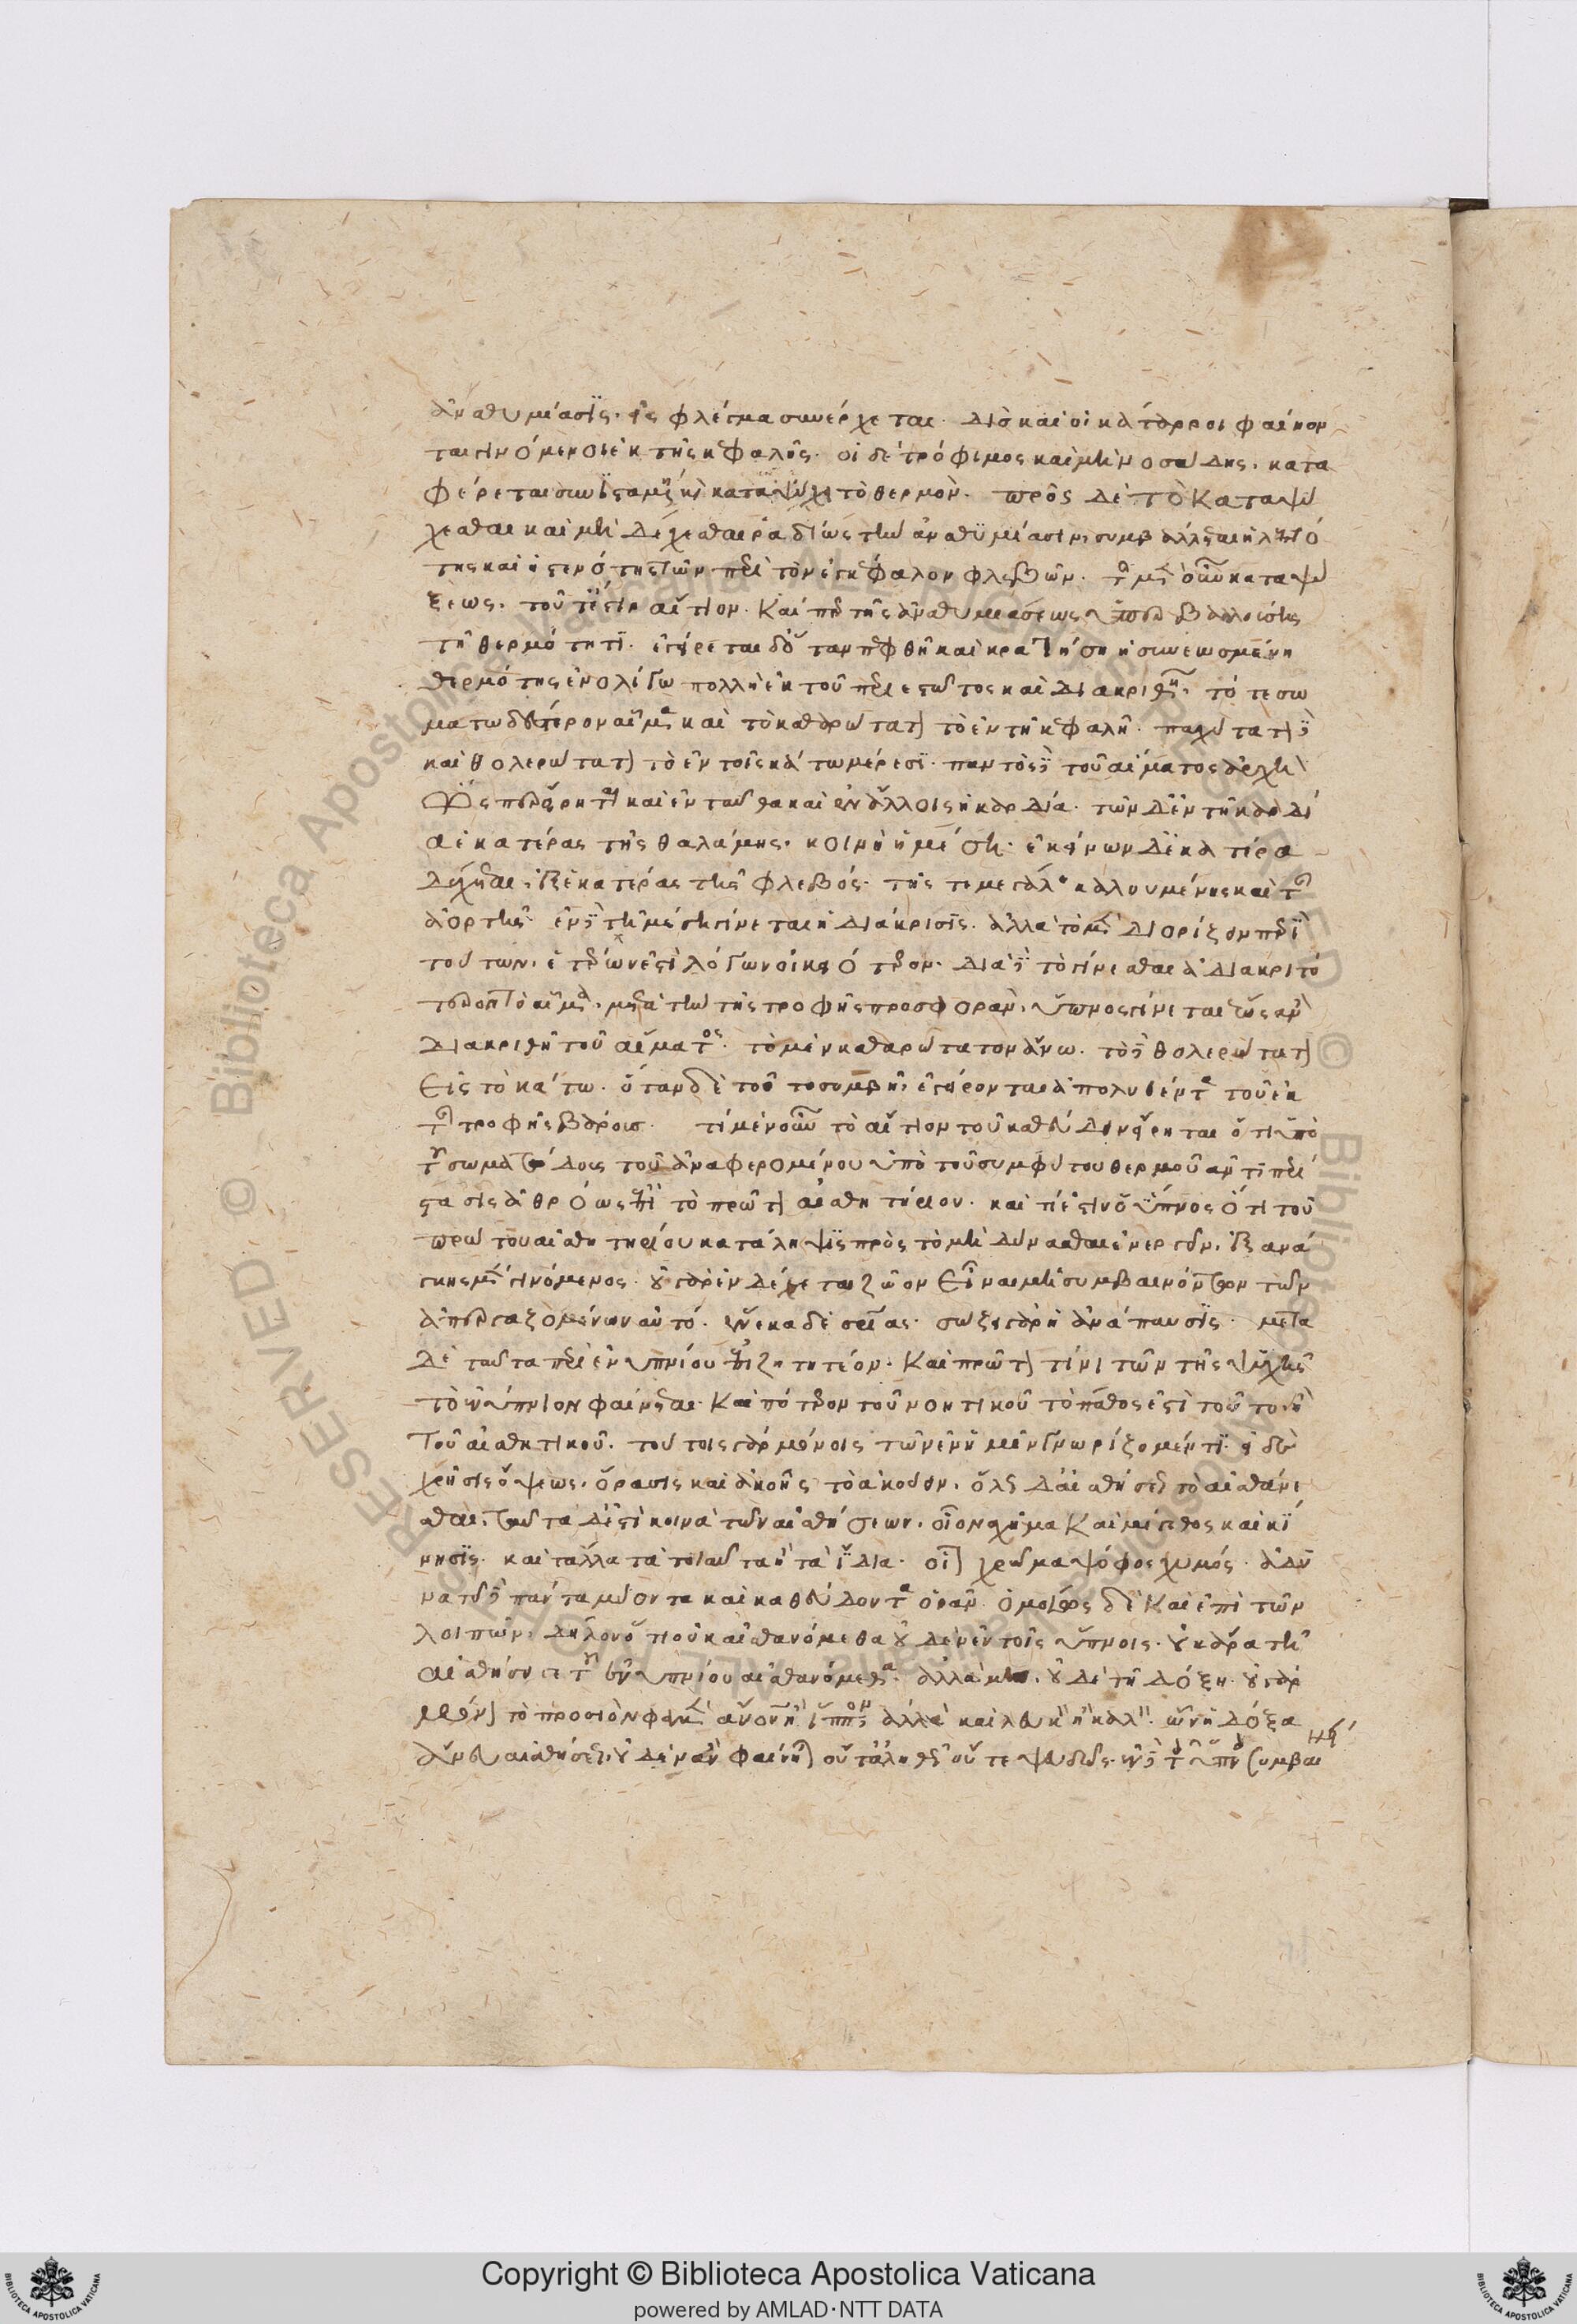 ἀναθυμίασις. εἰς φλέγμα συνέρχεται. διὸ καὶ οἱ κατάρροι φαίνον
ται γινόμενοι ἐκ τῆς κεφαλῆς. οἱ δὲ τρόφιμος καὶ μὴ νοσώδης. κατα
φέρεται συνισταμένη καὶ καταψύχει τὸ θερμόν. πρὸς δὲ τὸ καταψύ
χεσθαι καὶ μὴ δέχεσθαι ῥαδίως τὴν ἀναθυμίασιν, συμβάλλεται ἡ λεπτό
της καὶ ἡ στενότης τῶν περὶ τὸν ἐγκέφαλον φλεβῶν. τῆς μὲν οὖν καταψύ
ξεως. τοῦτ' ἐστὶν αἴτιον. καίπερ τῆς ἀναθυμιάσεως ὑπερβαλλούσης
τῇ θερμότητι. ἐγείρεται δ' ὅταν πεφθῇ καὶ κρατήσῃ ἡ συνεωσμένη
θερμότης ἐν ὀλίγω πολλὴ ἐκ τοῦ περιεστῶτος καὶ διακριθῇ. τό τε σω
ματωδέστερον αἷμα καὶ τὸ καθαρώτατον τὸ ἐν τῇ κεφαλῇ. παχύτατον δὲ
καὶ θολερώτατον τὸ ἐν τοῖς κάτω μέρεσι. παντὸς δὲ τοῦ αἵματος ἀρχὴ
ὥσπερ εἴρηται καὶ ἐνταῦθα καὶ ἐν ἄλλοις ἡ καρδία. τῶν δ' ἐν τῇ καρδί
α ἑκατέρας τῆς θαλάμης. κοινὴ ἡ μέση. ἐκείνων δ' ἑκατέρα
δέχεται ἐξ ἑκατέρας τῆς φλεβός. τῆς τε μεγάλης καλουμένης καὶ τῆς
ἀορτῆς. ἐν δὲ τῇ μέσῃ γίνεται ἡ διάκρισις. ἀλλὰ τὸ μὲν διορίζειν περὶ
τούτων. ἑτέρων ἐστὶ λόγων οἰκειότερον. διὰ δὲ τὸ γίνεσθαι ἀδιακριτό
τερον τὸ αἷμα. μετὰ τὴν τῆς τροφῆς προσφορὰν. ὕπνος γίνεται ἕως ἂν
διακριθῇ τοῦ αἵματος. τὸ μὲν καθαρώτατον ἄνω. τὸ δὲ θολερώτατον
εἰς τὸ κάτω. ὅταν δὲ τοῦτο συμβῇ, ἐγείρονται ἀπολυθέντα τοῦ ἐκ
τῆς τροφῆς βάρους. τί μὲν οὖν τὸ αἴτιον τοῦ καθεύδειν εἴρηται ὅτι ἡ ὑπὸ
τοῦ σωματώδους τοῦ ἀναφερομένου ὑπὸ τοῦ συμφύτου θερμοῦ ἀντιπερί
στασις ἀθρόως ἐπὶ τὸ πρῶτον αἰσθητήριον. καὶ τί ἐστιν ὁ ὕπνος ὅτι τοῦ
πρώτου αἰσθητηρίου κατάληψις πρὸς τὸ μὴ δύνασθαι ἐνεργεῖν. ἐξ ἀνά
γκης μὲν γινόμενος. οὐ γὰρ ἐνδέχεται ζῶον εἶναι μὴ συμβαινόντων τῶν
ἀπεργαζομένων αὐτό. ἕνεκα δὲ σωτηρίας. σώζει γὰρ ἡ ἀνάπαυσις. μετὰ
δὲ ταῦτα περὶ ἐνυπνίου ἐπιζητητέον. καὶ πρῶτον τίνι τῶν τῆς ψυχῆς
τὸ ἐνύπνιον φαίνεται. καὶ πότερον τοῦ νοητικοῦ τὸ πάθος ἐστὶ τοῦτο ἢ
τοῦ αἰσθητικοῦ. τούτοις γὰρ μόνοις τῶν ἐν ἡμῖν γνωρίζομέν τι. εἰ δὲ
χρῆσις ὄψεως. ὅρασις καὶ ἀκοῆς τὸ ἀκούειν. ὅλως δ' αἰσθήσεως τὸ αἰσθάνε
σθαι. ταῦτα δ' ἐστὶ κοινὰ τῶν αἰσθήσεων. οἷον σχῆμα καὶ μέγεθος καὶ κί
νησις. καὶ τἄλλα τὰ τοιαῦτα ἢ τὰ ἴδια. οἷον χρῶμα ψόφος χυμός. ἀδύ
νατον δὲ πάντα μύοντα καὶ καθεύδοντα ὁρᾶν. ὁμοίως δὲ καὶ ἐπὶ τῶν
λοιπῶν. δῆλον ὅτι οὐκ αἰσθανόμεθα οὐδὲν ἐν τοῖς ὕπνοις. οὐκ ἄρα τῇ
αἰσθήσει γε τοῦ ἐνυπνίου αἰσθανόμεθα. ἀλλὰ μὴν. οὐδὲ τῇ δόξῃ. οὐ γὰρ
μόνον τὸ προσιὸν φαμὲν ἄνον ἢ ἵππον εἶναι ἀλλὰ καὶ λευκὸν ἢ καλόν. ὧν ἡ δόξα
ἄνευ αἰσθήσεως οὐδὲν ἂν φαίη οὔτ' ἀληθῶς οὔτε ψευδῶς. ἐν δὲ τοῖς ὕπνοις συμβαί